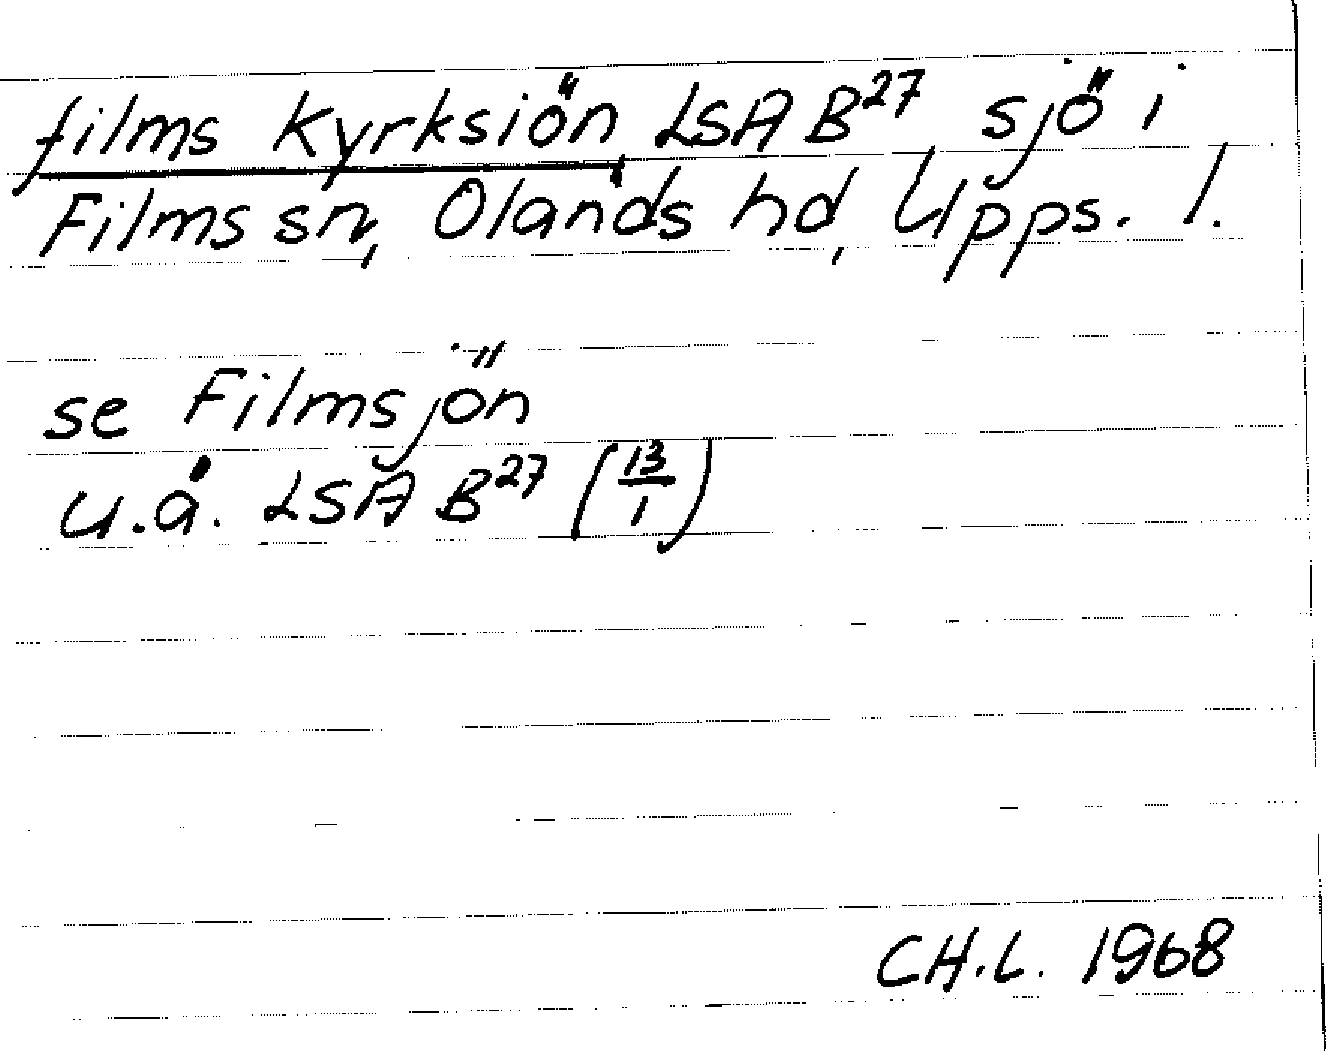 films Kyrksiön, LSA B27 sjö i
Films sn, Olands hd, Upps. l.
se Filmsjön
u.å. LSA B27 (13/1)
CH.L. 1968